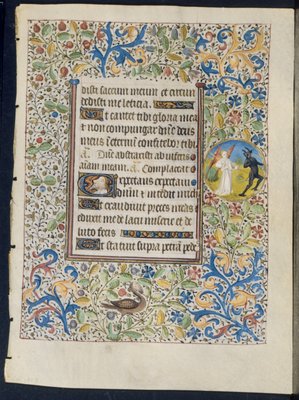 disti saccum meum et circun
dedisti me leticia.
Et cantet tibi gloria mea
et non compungar dñe deus
meus ī eternū confitebor tibi.
añ. Dñe abstraxisti ab inferis
aīam meam. añ. Complaceat
Expectans expectaui
dominū et intendit michi
Et exaudiuit preces meas et
eduxit me de lacu miserie et de
luto fecis
Et statuit supra petrā pede